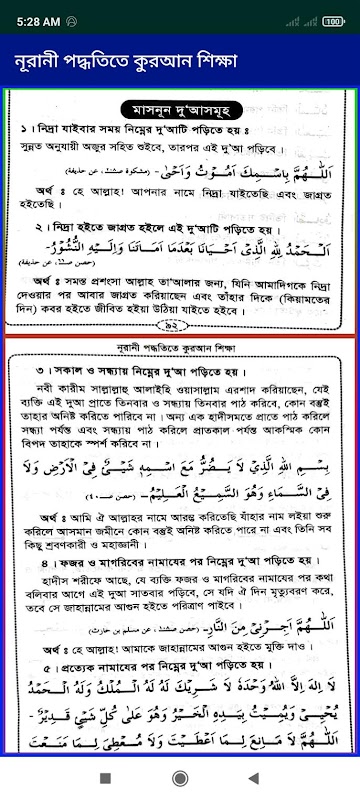 5:28 AM
100
নূরানী পদ্ধতিতে কুরআন শিক্ষা
মাসনূন দু'আসমূহ
১। নিদ্রা যাইবার সময় নিম্নের দু'আটি পড়িতে হয় ঃ
সুন্নত অনুযায়ী অজুর সহিত শুইবে, তারপর এই দু'আ পড়িবে।
اَللّٰهُمَّ بِاسْمِكَ اَمُوْتُ وَاَحْىٰ- (مشكوة صـ، عن حذيفة)
অর্থ ঃ হে আল্লাহ! আপনার নামে নিদ্রা যাইতেছি এবং জাগ্রত
হইতেছি।
২। নিদ্রা হইতে জাগ্রত হইলে এই দু'আটি পড়িতে হয়।
اَلْحَمْدُ لِلّٰهِ الَّذِىْ اَحْيَانَا بَعْدَمَا اَمَاتَنَا وَاِلَيْهِ النُّشُوْرُ-
(حصن صـ، عن حذيفة)
অর্থ ঃ সমস্ত প্রশংসা আল্লাহ তা'আলার জন্য, যিনি আমাদিগকে নিদ্রা
দেওয়ার পর আবার জাগ্রত করিয়াছেন এবং তাঁহার দিকে (কিয়ামতের
দিন) কবর হইতে জীবিত হইয়া উঠিয়া যাইতে হইবে।
৯২
নূরানী পদ্ধতিতে কুরআন শিক্ষা
৩। সকাল ও সন্ধ্যায় নিম্নের দু'আ পড়িতে হয়।
নবী কারীম সাল্লাল্লাহু আলাইহি ওয়াসাল্লাম এরশাদ করিয়াছেন, যেই
ব্যক্তি এই দুআ প্রাতে তিনবার ও সন্ধ্যায় তিনবার পাঠ করিবে, কোন বস্তুই
তাহার অনিষ্ট করিতে পারিবে না। অন্য এক হাদীসমতে প্রাতে পাঠ করিলে
সন্ধ্যা পর্যন্ত এবং সন্ধ্যায় পাঠ করিলে প্রাতকাল পর্যন্ত আকস্মিক কোন
বিপদ তাহাকে স্পর্শ করিবে না।
بِسْمِ اللّٰهِ الَّذِىْ لَا يَضُرُّ مَعَ اسْمِهٖ شَيْئٌ فِى الْاَرْضِ وَلَا
فِى السَّمَاءِ وَهُوَ السَّمِيْعُ الْعَلِيْمُ- (حصن صـ)
অর্থ ঃ আমি ঐ আল্লাহর নামে আরম্ভ করিতেছি যাঁহার নাম লইয়া শুরু
করিলে আসমান জমীনে কোন বস্তুই অনিষ্ট করিতে পারে না এবং তিনি সব
কিছু শ্রবণকারী ও মহাজ্ঞানী।
৪। ফজর ও মাগরিবের নামাযের পর নিম্নের দু'আ পড়িতে হয়।
হাদীস শরীফে আছে, যে ব্যক্তি ফজর ও মাগরিবের নামাযের পর কথা
বলিবার আগে এই দু'আ সাতবার পড়িবে, সে যদি ঐ দিন মৃত্যুবরণ করে,
তবে সে জাহান্নামের আগুন হইতে পরিত্রাণ পাইবে।
اَللّٰهُمَّ اَجِرْنِىْ مِنَ النَّارِ- (حصن صـ، عن مسلم بن حارث)
অর্থ ঃ হে আল্লাহ! আমাকে জাহান্নামের আগুন হইতে মুক্তি দাও।
৫। প্রত্যেক নামাযের পর নিম্নের দু'আ পড়িতে হয়।
لَا اِلٰهَ اِلَّا اللّٰهُ وَحْدَهٗ لَا شَرِيْكَ لَهٗ لَهُ الْمُلْكُ وَلَهُ الْحَمْدُ
يُحْيِىْ وَيُمِيْتُ بِيَدِهِ الْخَيْرُ وَهُوَ عَلٰى كُلِّ شَيْئٍ قَدِيْرٌ-
اَللّٰهُمَّ لَا مَانِعَ لِمَا اَعْطَيْتَ وَلَا مُعْطِىَ لِمَا مَنَعْتَ